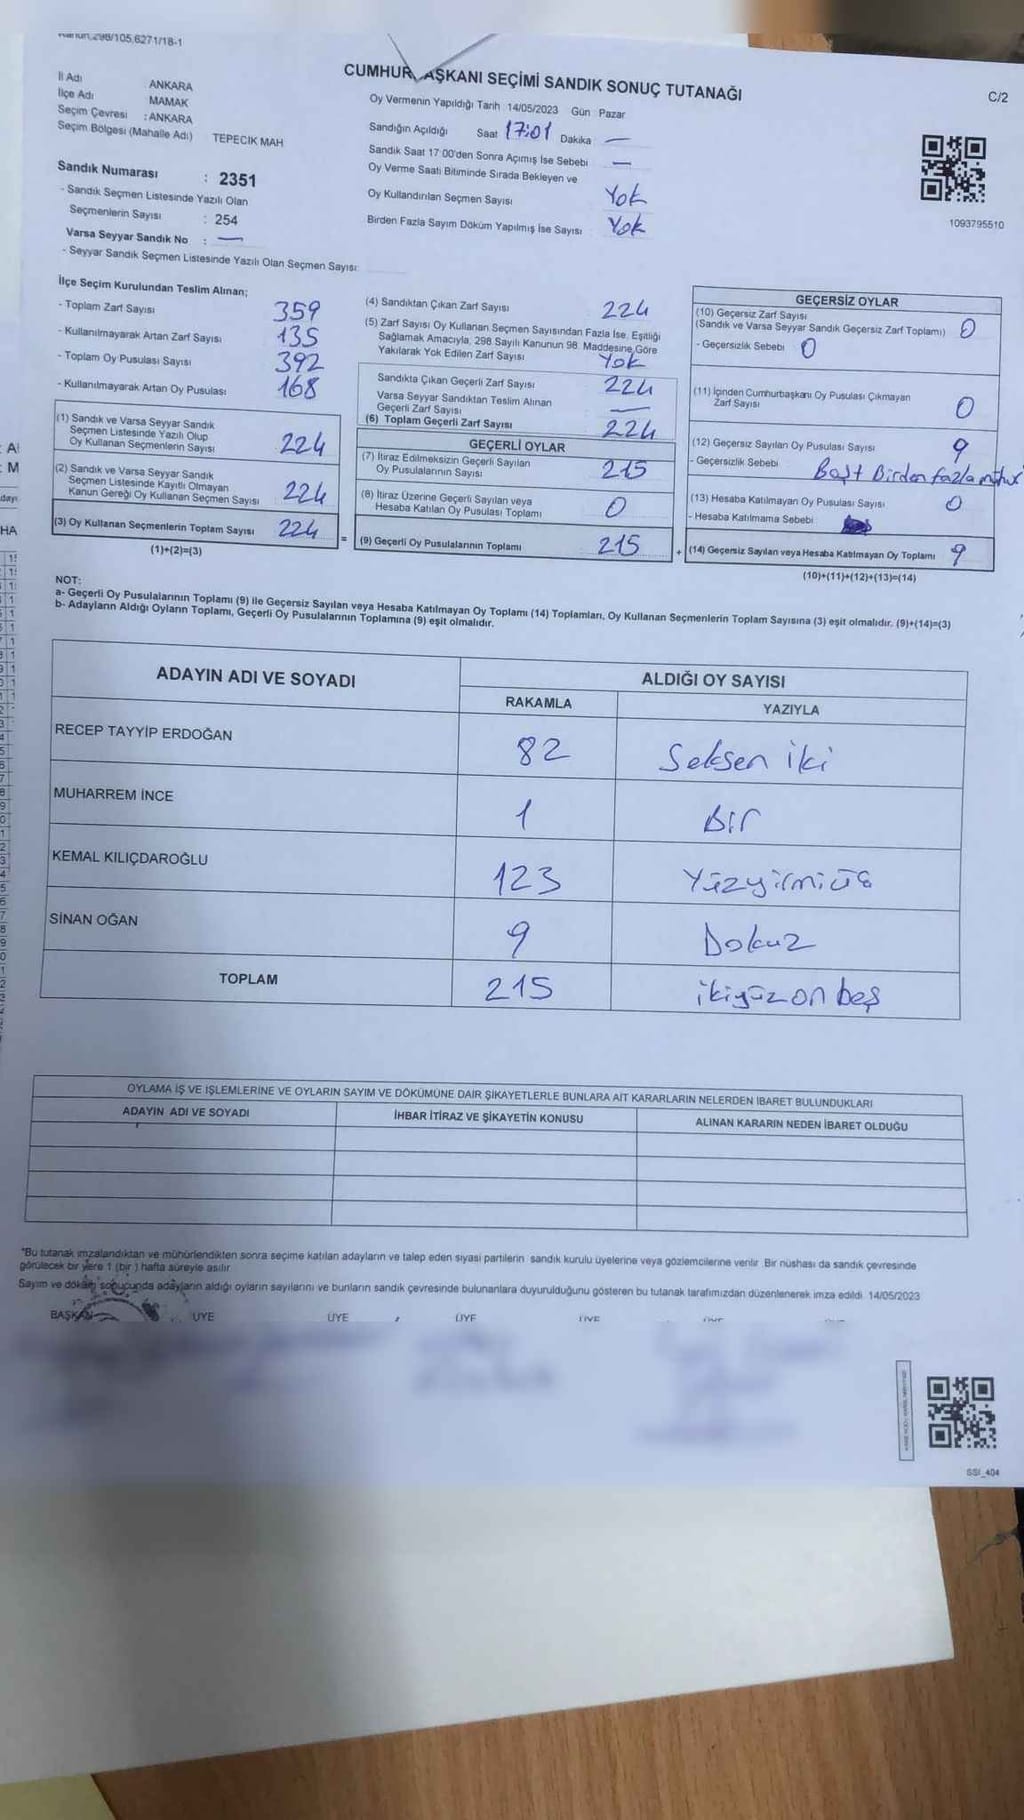 Kanun:298/105,6271/18-1
CUMHURBAŞKANI SEÇİMİ SANDIK SONUÇ TUTANAĞI
C/2
İl Adı ANKARA
İlçe Adı MAMAK
Seçim Çevresi : ANKARA
Seçim Bölgesi (Mahalle Adı) TEPECİK MAH
Oy Vermenin Yapıldığı Tarih 14/05/2023 Gün Pazar
Sandığın Açıldığı Saat 17:01 Dakika —
Sandık Saat 17 00'den Sonra Açımış İse Sebebi —
Oy Verme Saati Bitiminde Sırada Bekleyen ve
Oy Kullandırılan Seçmen Sayısı Yok
Birden Fazla Sayım Döküm Yapılmış İse Sayısı Yok
1093795510
Sandık Numarası : 2351
- Sandık Seçmen Listesinde Yazılı Olan
Seçmenlerin Sayısı : 254
Varsa Seyyar Sandık No : —
- Seyyar Sandık Seçmen Listesinde Yazılı Olan Seçmen Sayısı:
İlçe Seçim Kurulundan Teslim Alınan;
- Toplam Zarf Sayısı 359
- Kullanılmayarak Artan Zarf Sayısı 135
- Toplam Oy Pusulası Sayısı 392
- Kullanılmayarak Artan Oy Pusulası 168
(1) Sandık ve Varsa Seyyar Sandık
Seçmen Listesinde Yazılı Olup
Oy Kullanan Seçmenlerin Sayısı 224
(2) Sandık ve Varsa Seyyar Sandık
Seçmen Listesinde Kayıtlı Olmayan
Kanun Gereği Oy Kullanan Seçmen Sayısı 224
(3) Oy Kullanan Seçmenlerin Toplam Sayısı 224
(1)+(2)=(3)
(4) Sandıktan Çıkan Zarf Sayısı 224
(5) Zarf Sayısı Oy Kullanan Seçmen Sayısından Fazla İse, Eşitliği
Sağlamak Amacıyla, 298 Sayılı Kanunun 98. Maddesine Göre
Yakılarak Yok Edilen Zarf Sayısı Yok
Sandıkta Çıkan Geçerli Zarf Sayısı 224
Varsa Seyyar Sandıktan Teslim Alınan
Geçerli Zarf Sayısı —
(6) Toplam Geçerli Zarf Sayısı 224
GEÇERLİ OYLAR
(7) İtiraz Edilmeksizin Geçerli Sayılan
Oy Pusulalarının Sayısı 215
(8) İtiraz Üzerine Geçerli Sayılan veya
Hesaba Katılan Oy Pusulası Toplamı 0
= (9) Geçerli Oy Pusulalarının Toplamı 215
GEÇERSİZ OYLAR
(10) Geçersiz Zarf Sayısı
(Sandık ve Varsa Seyyar Sandık Geçersiz Zarf Toplamı) 0
- Geçersizlik Sebebi 0
(11) İçinden Cumhurbaşkanı Oy Pusulası Çıkmayan
Zarf Sayısı 0
(12) Geçersiz Sayılan Oy Pusulası Sayısı 9
- Geçersizlik Sebebi Boşt Birden fazla mühür
(13) Hesaba Katılmayan Oy Pusulası Sayısı 0
- Hesaba Katılmama Sebebi
+ (14) Geçersiz Sayılan veya Hesaba Katılmayan Oy Toplamı 9
(10)+(11)+(12)+(13)=(14)
NOT:
a- Geçerli Oy Pusulalarının Toplamı (9) ile Geçersiz Sayılan veya Hesaba Katılmayan Oy Toplamı (14) Toplamları, Oy Kullanan Seçmenlerin Toplam Sayısına (3) eşit olmalıdır. (9)+(14)=(3)
b- Adayların Aldığı Oyların Toplamı, Geçerli Oy Pusulalarının Toplamına (9) eşit olmalıdır.
ADAYIN ADI VE SOYADI ALDIĞI OY SAYISI
RAKAMLA YAZIYLA
RECEP TAYYİP ERDOĞAN 82 Seksen iki
MUHARREM İNCE 1 Bir
KEMAL KILIÇDAROĞLU 123 Yüzyirmiüç
SİNAN OĞAN 9 Dokuz
TOPLAM 215 ikiyüzon beş
OYLAMA İŞ VE İŞLEMLERİNE VE OYLARIN SAYIM VE DÖKÜMÜNE DAİR ŞİKAYETLERLE BUNLARA AİT KARARLARIN NELERDEN İBARET BULUNDUKLARI
ADAYIN ADI VE SOYADI İHBAR İTİRAZ VE ŞİKAYETİN KONUSU ALINAN KARARIN NEDEN İBARET OLDUĞU
"Bu tutanak imzalandıktan ve mühürlendikten sonra seçime katılan adayların ve talep eden siyasi partilerin sandık kurulu üyelerine veya gözlemcilerine verilir Bir nüshası da sandık çevresinde
görülecek bir yere 1 (bir) hafta süreyle asılır
Sayım ve döküm sonucunda adayların aldığı oyların sayılarını ve bunların sandık çevresinde bulunanlara duyurulduğunu gösteren bu tutanak tarafımızdan düzenlenerek imza edildi 14/05/2023
BAŞKAN ÜYE ÜYE ÜYE ÜYE
SSI_404